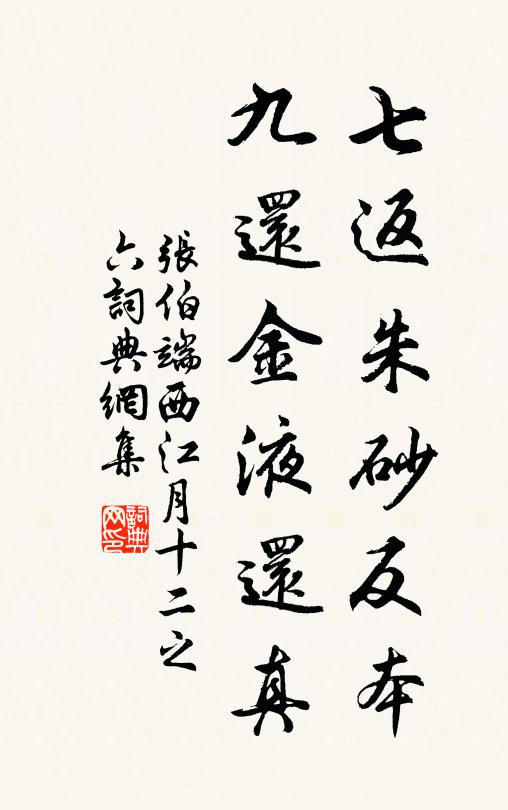 七返朱砂反本
九還金液還真
張伯端西江月十二之
六詞典網集
詞典網印